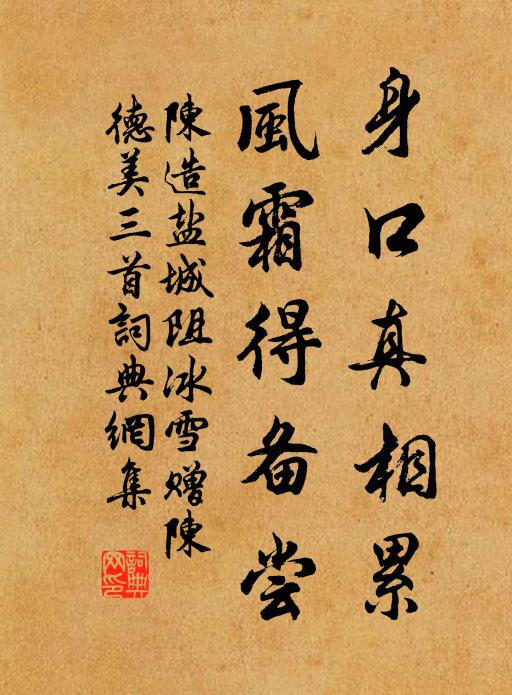 身口真相累
風霜得备尝
陳造盐城阻冰雪赠陳
德美三首詞典網集
詞典
网印